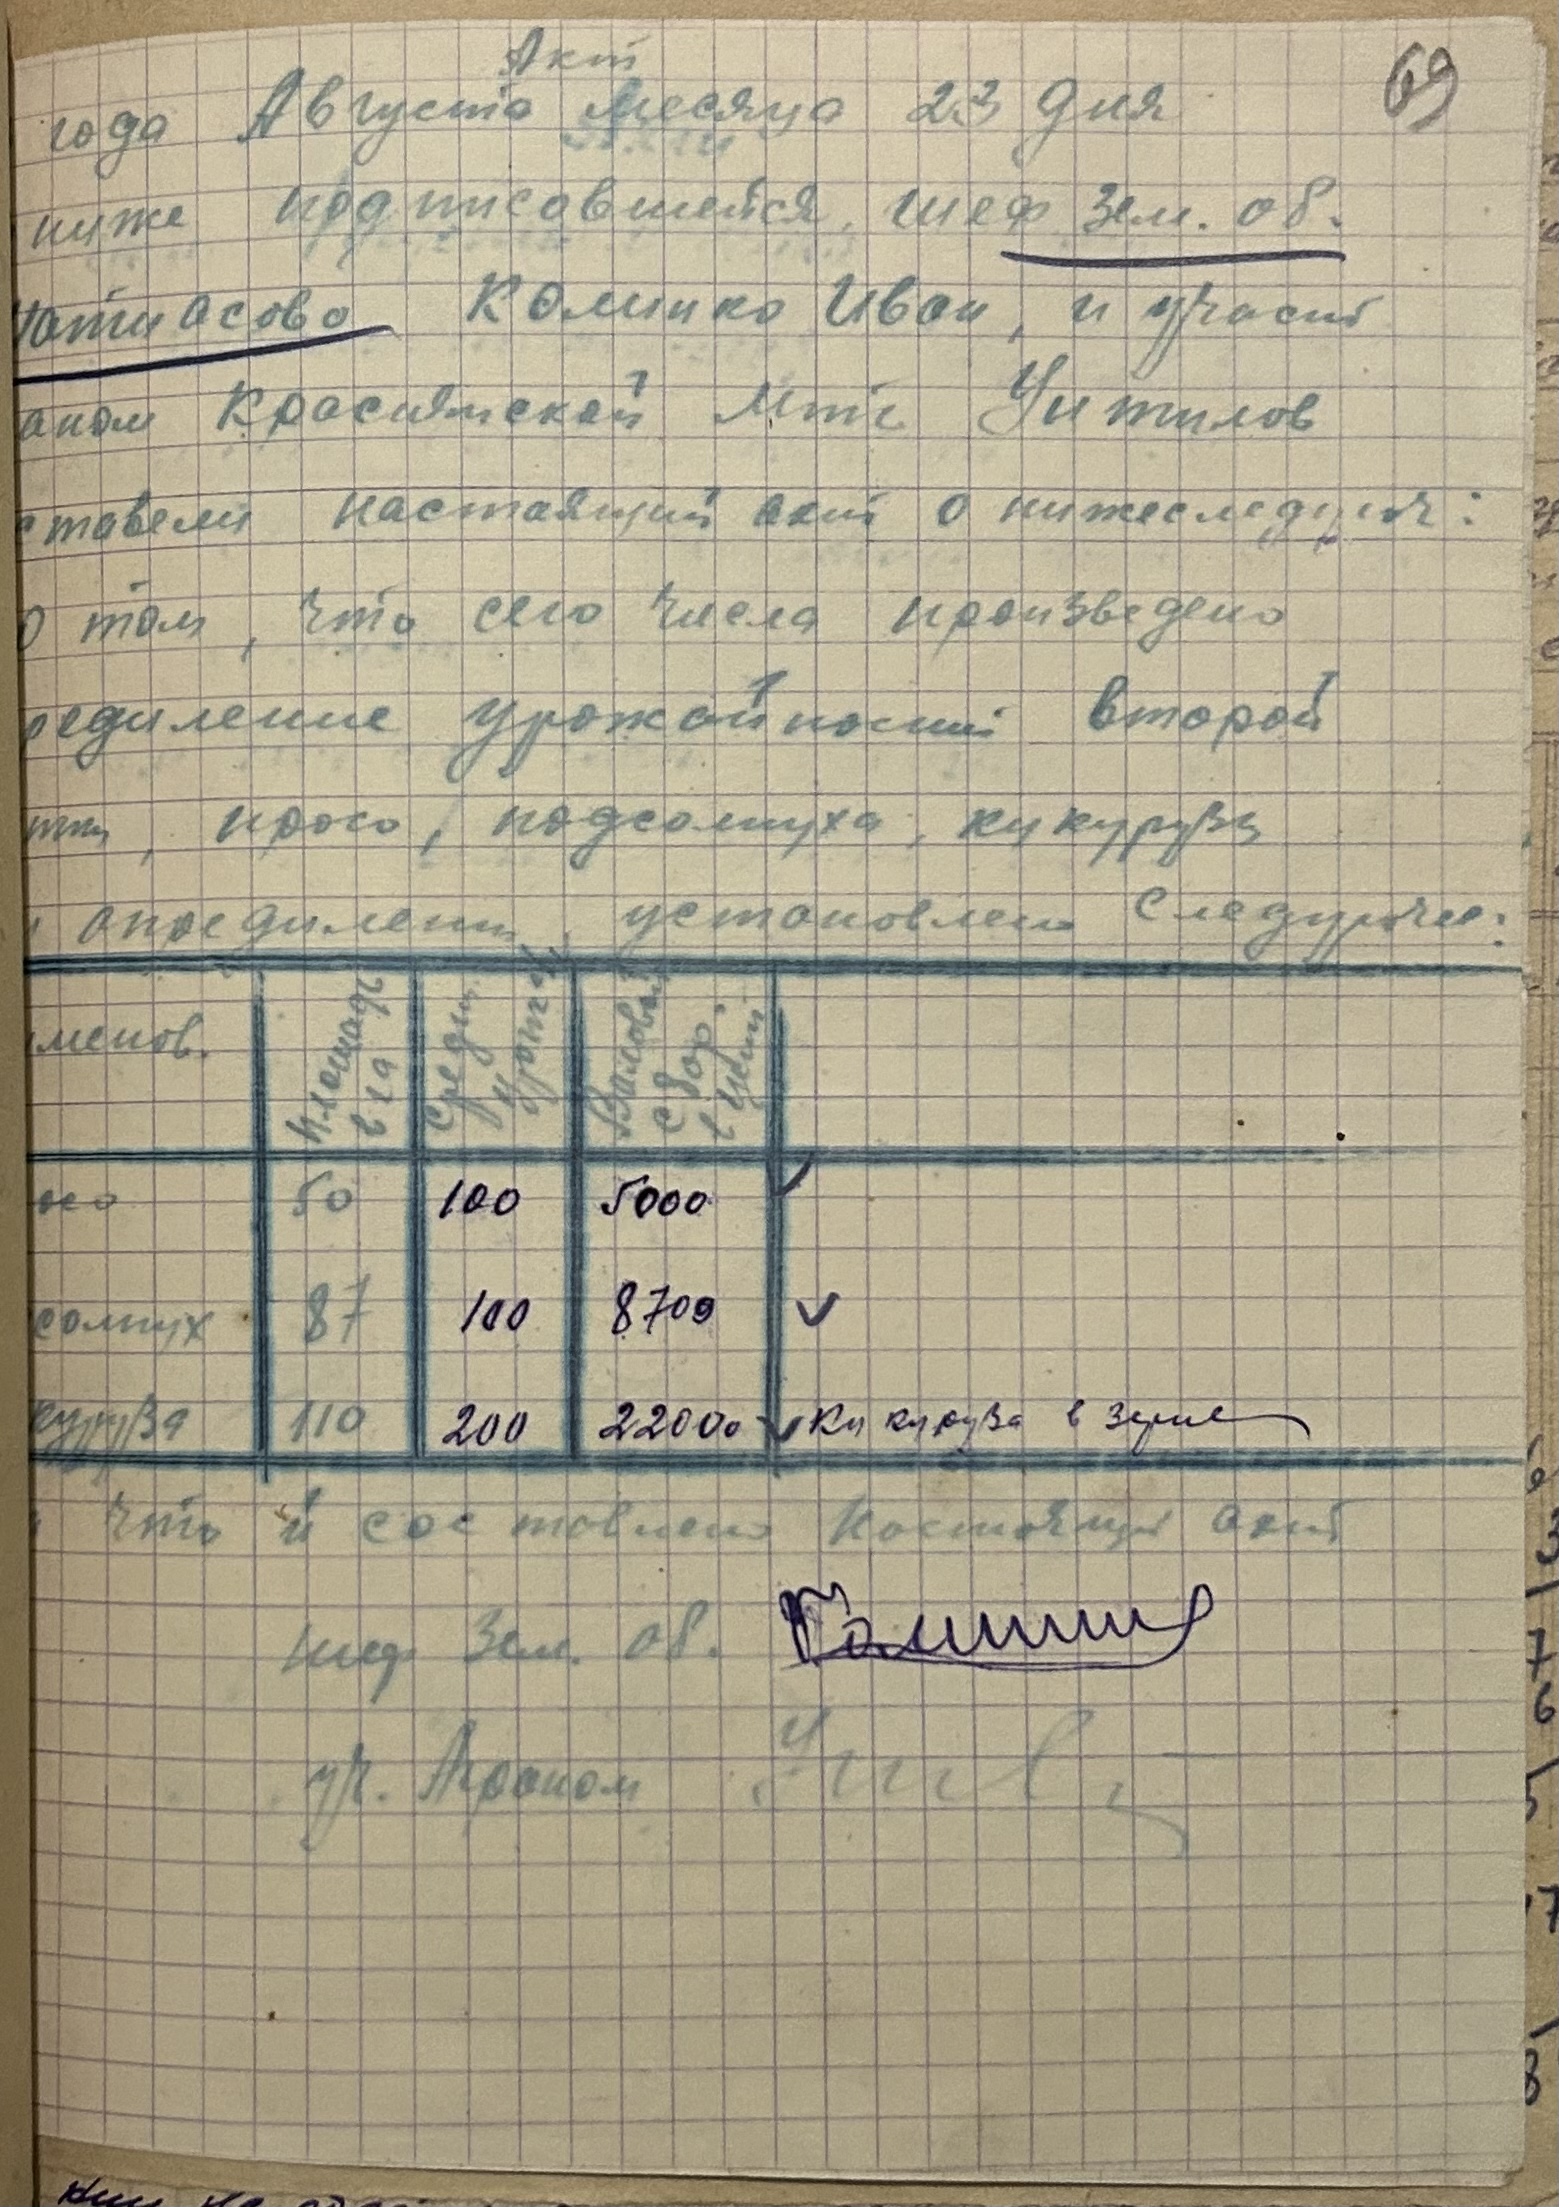 Акт
69
года Августа месяца 23 дня
ниже подписавшейся, шеф Зем. об.
Коминко Иван, и участ
аном Красиямской Мтс Унтилов
ставели настаящий акт о нижеследуюч:
О том, что сего числа произведено
ределение урожайности второй
тки, просо, подсолнуха, кукурузы
определении установлено следуючее:
менов. Площадь в га Средн. урожай Валовой сбор. в цент
осо 50 100 5000 ✓
солнух 87 100 8700 ✓
куруза 110 200 22000 ✓ Кукуруза в зерне
что й составлено настоящий акт
шеф Зем. об.
уч. Агроном